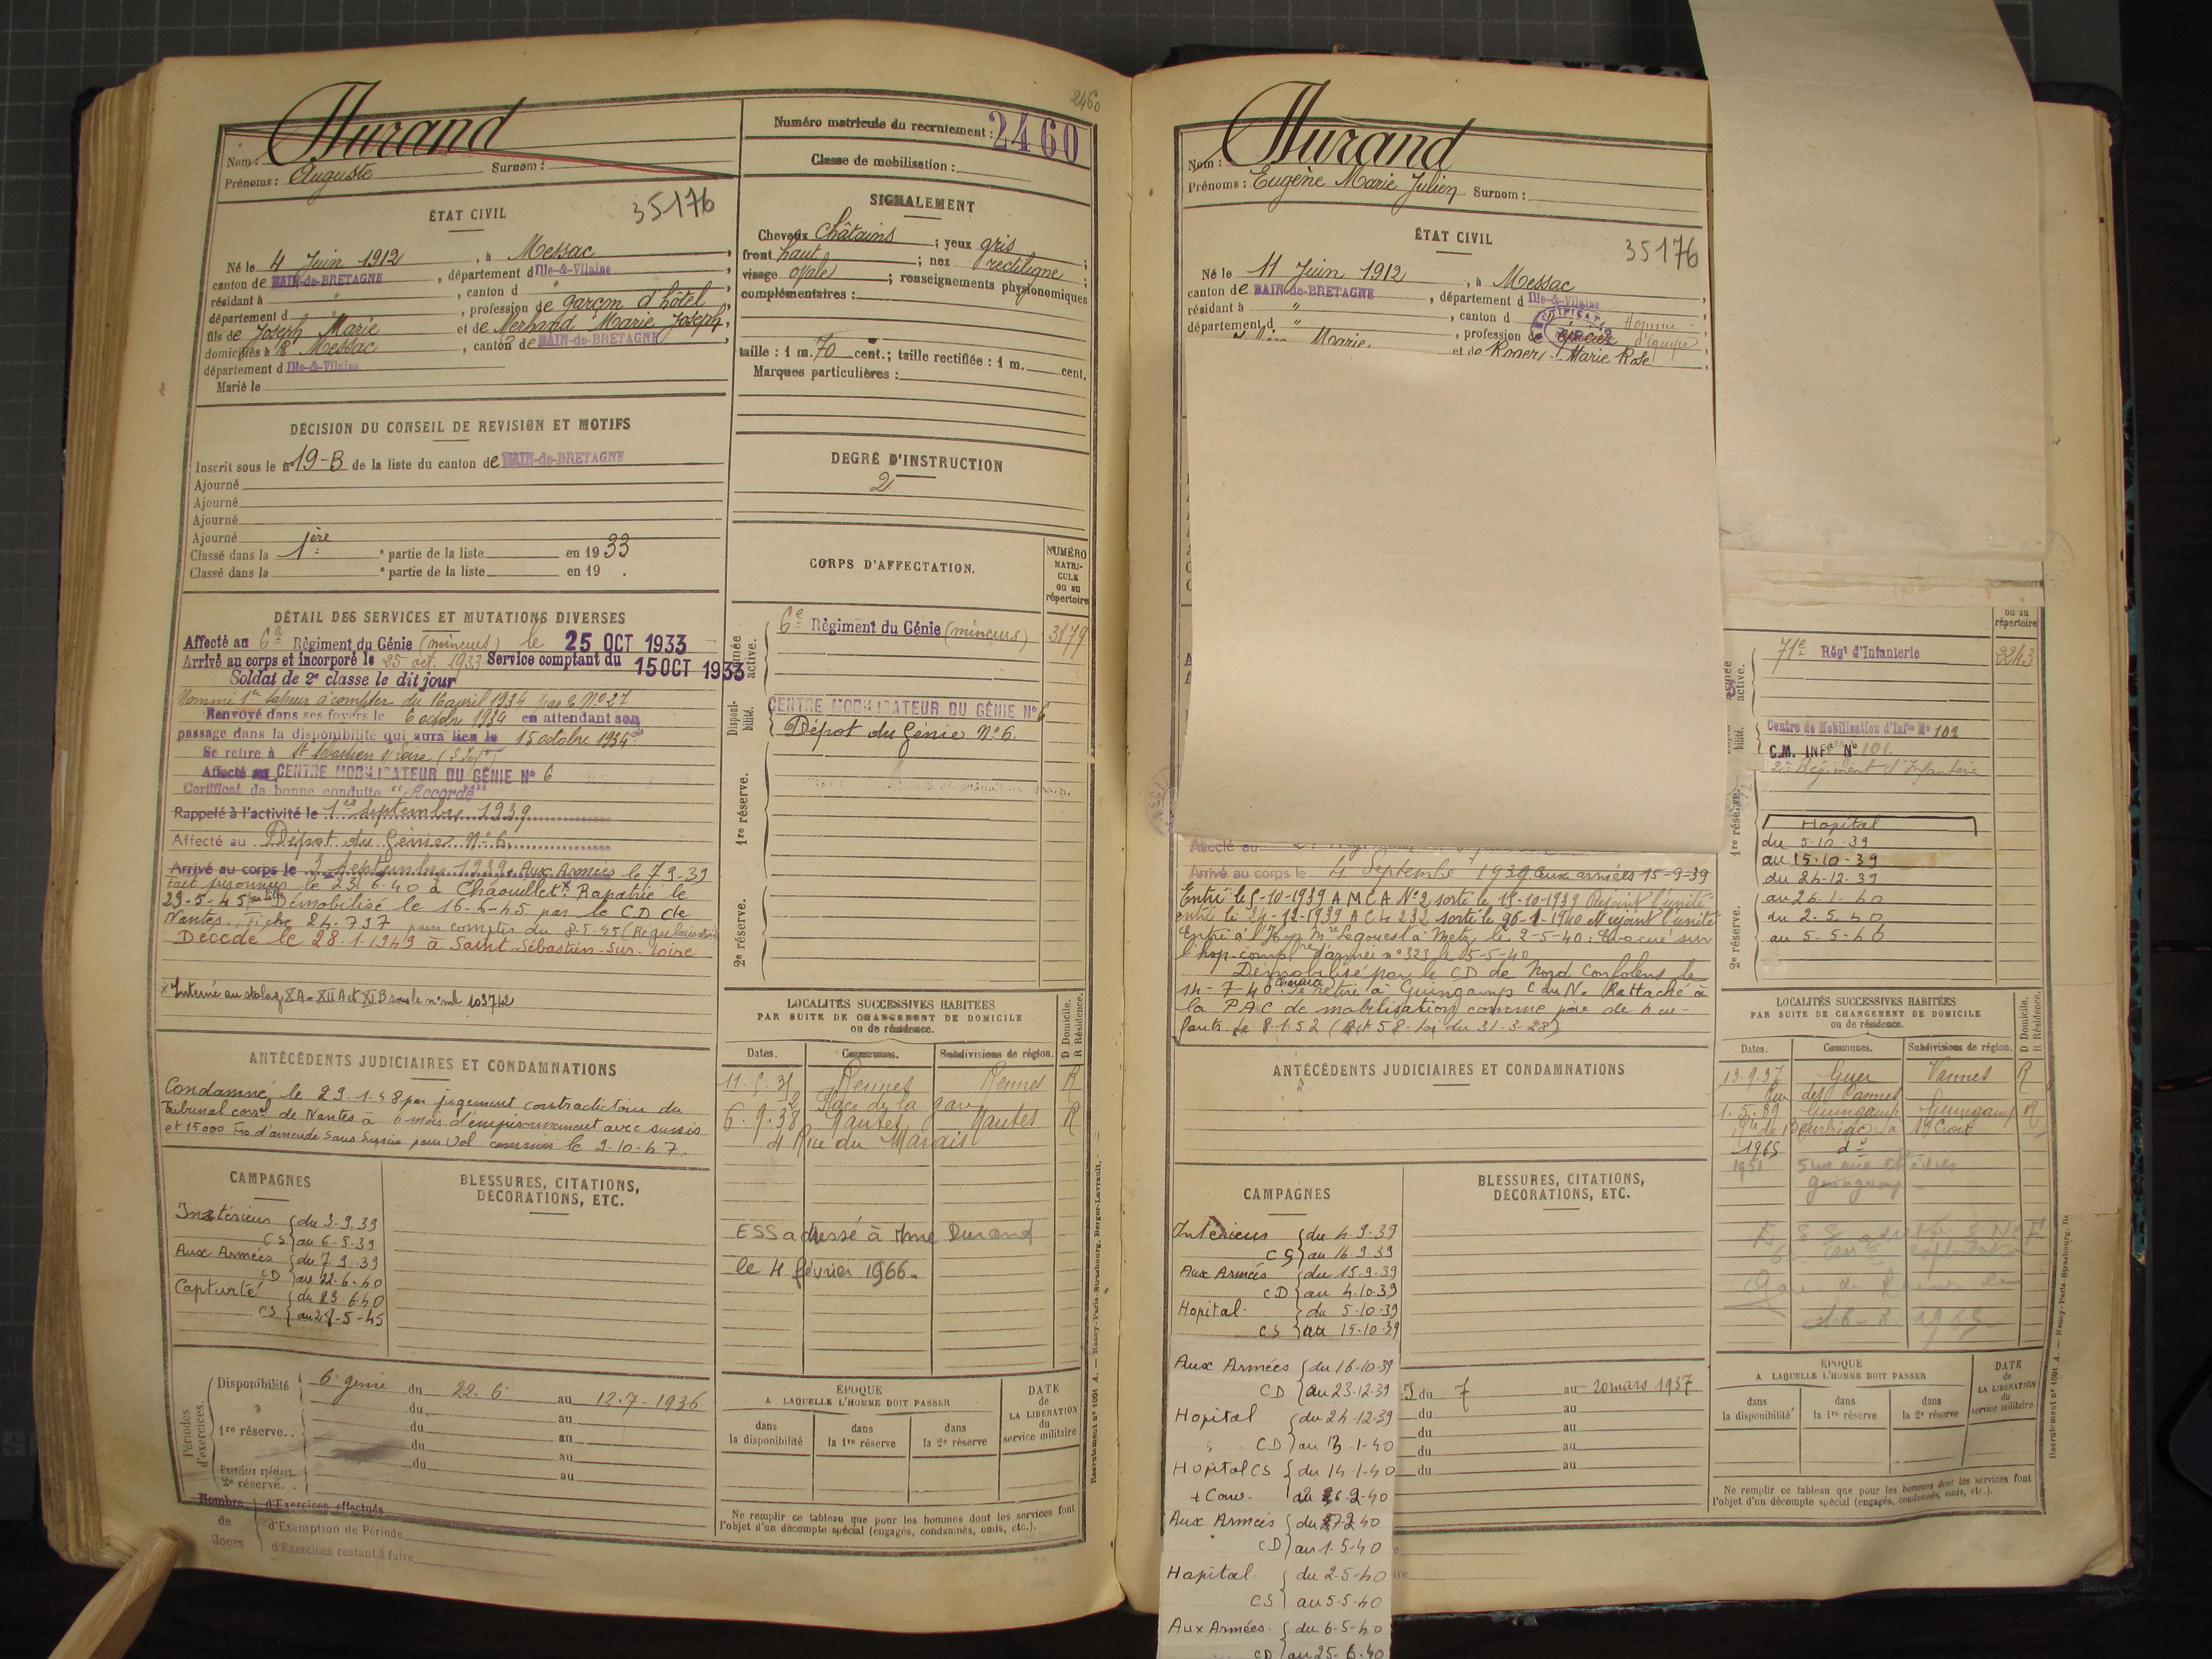 2460
Nom : Durand
Prénoms : Auguste Surnom :
Numéro matricule du recrutement : 2460
Classe de mobilisation :
ÉTAT CIVIL
35176
Né le 4 Juin 1912, à Messac,
canton de BAIN-de-BRETAGNE, département d Ille-&-Vilaine,
résidant à " , canton d "
département d , profession de garçon d'hôtel,
fils de Joseph Marie et de Nerhand Marie Joseph,
domiciliés à Messac, canton de BAIN-de-BRETAGNE
département d Ille-&-Vilaine
Marié le
SIGNALEMENT
Cheveux châtains ; yeux gris
front haut ; nez rectiligne ;
visage ovale ; renseignements physionomiques
complémentaires :
taille : 1 m. 70 cent. ; taille rectifiée : 1 m. cent.
Marques particulières :
DÉCISION DU CONSEIL DE REVISION ET MOTIFS
Inscrit sous le n° 19-B de la liste du canton de BAIN-de-BRETAGNE
Ajourné
Ajourné
Ajourné
Ajourné
Classé dans la 1ère partie de la liste en 1933
Classé dans la e partie de la liste en 19 .
DEGRÉ D'INSTRUCTION
2
CORPS D'AFFECTATION.
NUMÉRO MATRI-CULE ou au répertoire
Armée active.
6e Régiment du Génie (mineurs) 3179
Disponibilité.
CENTRE MOBILISATEUR DU GÉNIE N° 6
Dépot du Génie N° 6.
1re réserve.
2e réserve.
DÉTAIL DES SERVICES ET MUTATIONS DIVERSES
Affecté au 6e Régiment du Génie (mineurs) le 25 OCT 1933
Arrivé au corps et incorporé le 25 oct. 1933 Service comptant du 15 OCT 1933
Soldat de 2e classe le dit jour
Nommé 1er Sapeur à compter du 16 avril 1934 N° 27
Renvoyé dans ses foyers le 6 octobre 1934 en attendant son
passage dans la disponibilité qui aura lieu le 15 octobre 1934
Se retire à St Sébastien s/ Loire
Affecté au CENTRE MOBILISATEUR DU GÉNIE N° 6
Certificat de bonne conduite "Accordé"
Rappelé à l'activité le 1er septembre 1939
Affecté au Dépot du Génie N° 6.
Arrivé au corps le 3 septembre 1939. Aux Armées le 7 9-39
Fait prisonnier le 23 6-40 à Chaouilley x Rapatrié le
29-5-45 Démobilisé le 16-6-45 par le CD de
Nantes. Fiche 24.737 pour compter du 8-5-45
Décédé le 28-1-1949 à Saint-Sébastien-sur-Loire
x Interné au stalag XA - XIIA et XIB sous le n° mle 103742
ANTÉCÉDENTS JUDICIAIRES ET CONDAMNATIONS
Condamné le 29.1.48 par jugement contradictoire du
Tribunal correl de Nantes à 6 mois d'emprisonnement avec sursis
et 15000 Frs d'amende Sans Sursis pour Vol commis le 2.10.47.
LOCALITÉS SUCCESSIVES HABITÉES
PAR SUITE DE CHANGEMENT DE DOMICILE
ou de résidence.
D Domicile. R Résidence.
Dates. Communes. Subdivisions de région.
11. 5. 35 Rennes Rennes R
2 Place de la gare
6. 9. 38 Nantes Nantes R
4 Rue du Marais
ESS adressé à Mme Durand
le 4 février 1966.
CAMPAGNES
Intérieur du 3-9-39
CS au 6-9-39
Aux Armées du 7 9-39
CD au 22-6-40
Capturé du 23-6-40
CS au 28-5-45
BLESSURES, CITATIONS,
DÉCORATIONS, ETC.
Périodes d'exercices.
Disponibilité 6e génie du 22.6 au 12.7-1936
du au
1re réserve. . du au
du au
Exercices spéciaux. 2e réserve. . du au
Nombre de Jours
d'Exercices effectués
d'Exemption de Période
d'Exercices restant à faire
ÉPOQUE
A LAQUELLE L'HOMME DOIT PASSER
dans la disponibilité dans la 1re réserve dans la 2e réserve
DATE DE LA LIBÉRATION du service militaire
Ne remplir ce tableau que pour les hommes dont les services font
l'objet d'un décompte spécial (engagés, condamnés, omis, etc.).
Recrutement n° 1001 A. — Nancy-Paris-Strasbourg, Berger-Levrault.
Nom : Durand
Prénoms : Eugène Marie Julien Surnom :
ÉTAT CIVIL
35176
Né le 11 Juin 1912, à Messac
canton de BAIN-de-BRETAGNE, département d Ille-&-Vilaine
résidant à " , canton d
département d " , profession de épicier Homme d'équipe
Marie et de Roger Marie Rose
ou au répertoire
active.
71e Régt d'Infanterie 2343
Centre de Mobilisation d'Infie N° 102
C.M. INFie N° 101.
2e Régiment d'Infanterie
1re réserve.
Hopital
du 5-10-39
au 15-10-39
du 24-12-39
au 26-1-40
du 2-5-40
au 5-5-40
2e réserve.
Affecté au
Arrivé au corps le 4 Septembre 1939. Aux armées 15-9-39
Entré le 5-10-1939 A M C A N° 2 sorti le 15-10-1939 Rejoint l'unité
entré le 24-12-1939 A C H 232 sorti le 26-1-1940 et rejoint l'unité
Entré à l'Hop. Mre Legouest à Metz le 2-5-40 : Evacué sur
l'hop. compl. d'armée n° 323 le 05-5-40
Démobilisé par le CD de Nord Confolens le
14-7-40 Se retire à Guingamp C du N. Rattaché à
la PAC de mobilisation comme père de 4 en-
fants le 8.1.52 (Art 58. loi du 31-3-28)
ANTÉCÉDENTS JUDICIAIRES ET CONDAMNATIONS
LOCALITÉS SUCCESSIVES HABITÉES
PAR SUITE DE CHANGEMENT DE DOMICILE
ou de résidence.
D Domicile. R Résidence.
Dates. Communes. Subdivisions de région.
13.9.37 Guer Vannes R
Rue des Cannes
1.5.39 Guingamp Guingamp R
1965 do
1951
Guingamp
CAMPAGNES
Intérieur du 4 9-39
CS au 14 9-39
Aux Armées du 15-9-39
CD au 4-10-39
Hopital. du 5-10-39
CS au 15-10-39
Aux Armées du 16-10-39
CD au 23-12-39
Hopital du 24-12-39
CD au 13-1-40
Hopital CS du 14-1-40
+ Conv. au 26-2-40
Aux Armées du 27-2-40
CD au 1-5-40
Hopital. du 2-5-40
CS au 5-5-40
Aux Armées. du 6-5-40
CD au 25-6-40
BLESSURES, CITATIONS,
DÉCORATIONS, ETC.
du 7 au 20 mars 1937
du au
du au
du au
du au
ÉPOQUE
A LAQUELLE L'HOMME DOIT PASSER
dans la disponibilité dans la 1re réserve dans la 2e réserve
DATE DE LA LIBÉRATION du service militaire
Ne remplir ce tableau que pour les hommes dont les services font
l'objet d'un décompte spécial (engagés, condamnés, omis, etc.).
Recrutement n° 1001 A. — Nancy-Paris-Strasbourg, Be